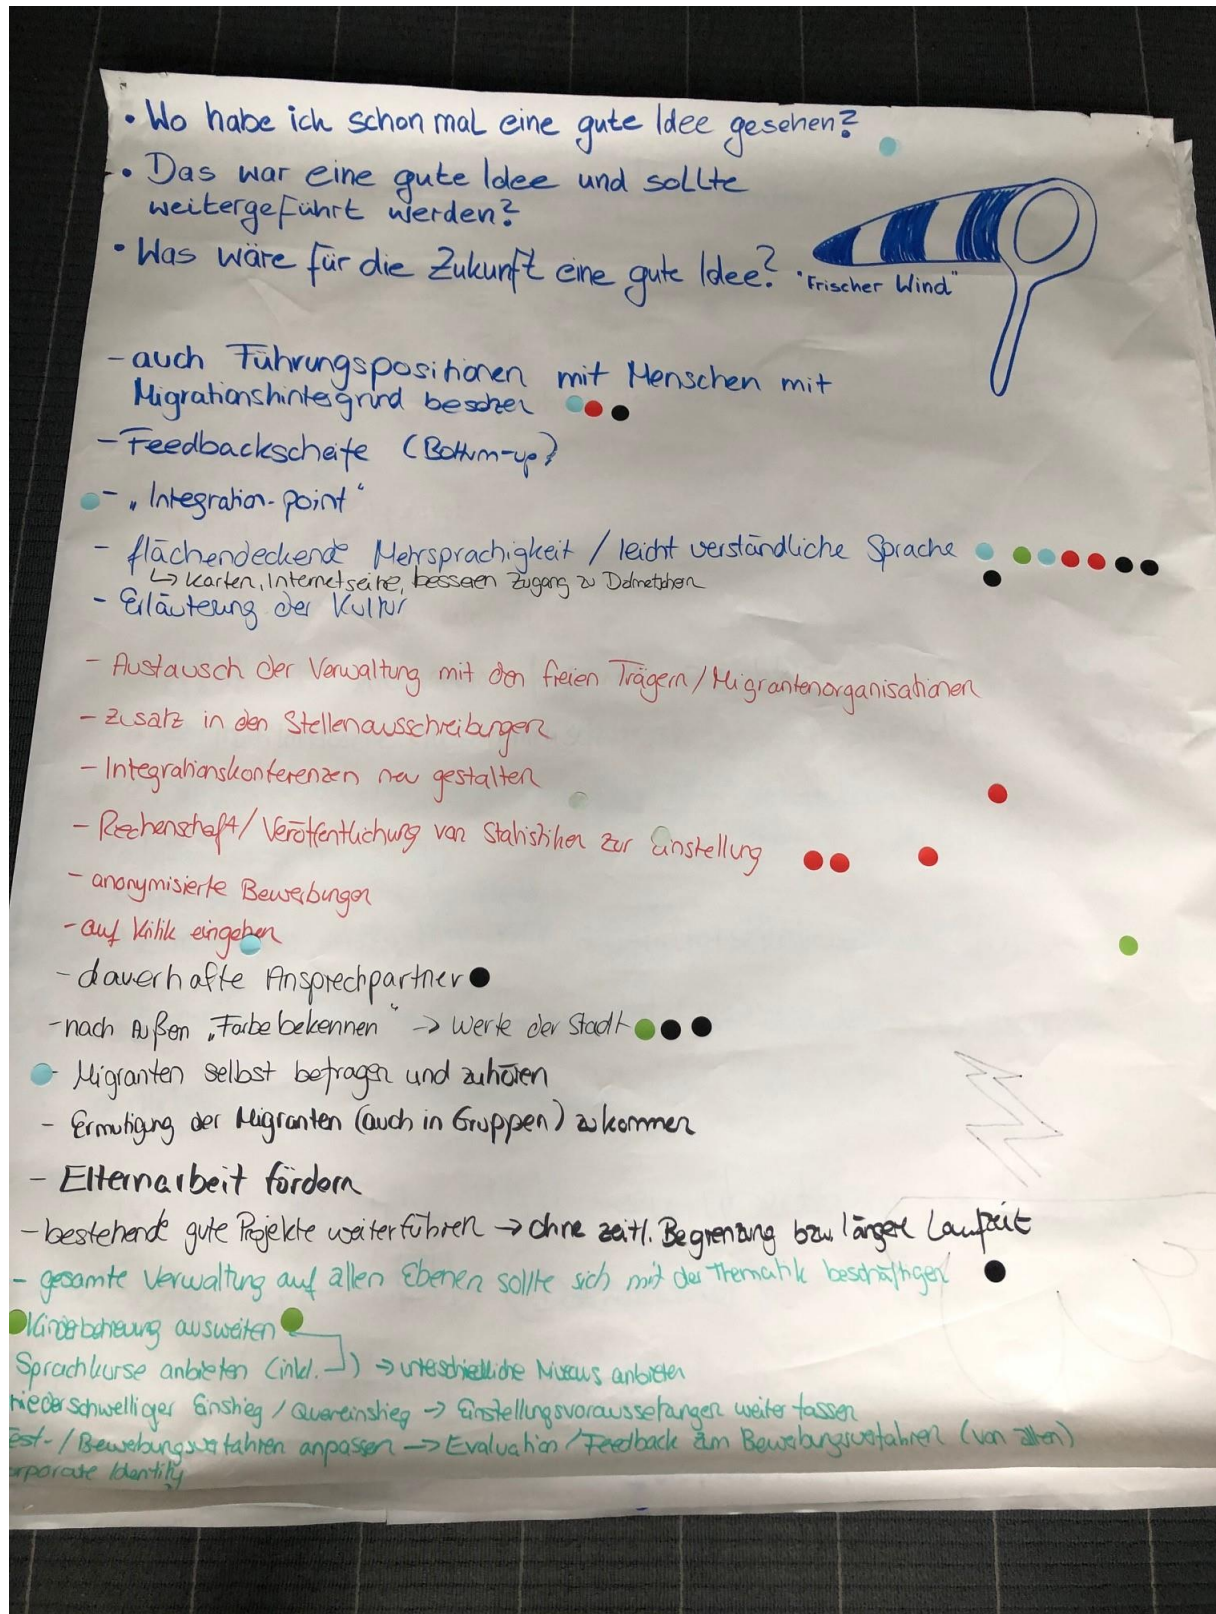 • Wo habe ich schon mal eine gute Idee gesehen?
• Das war eine gute Idee und sollte
weitergeführt werden?
• Was wäre für die Zukunft eine gute Idee?
"Frischer Wind"
- auch Führungspositionen mit Menschen mit
Migrationshintergrund besetzen
- Feedbackschleife (Bottom-up)
- „Integration-point“
- flächendeckende Mehrsprachigkeit / leicht verständliche Sprache
↳ Karten, Internetseite, besseren Zugang zu Dolmetschen
- Erläuterung der Kultur
- Austausch der Verwaltung mit den freien Trägern/Migrantenorganisationen
- Zusatz in den Stellenausschreibungen
- Integrationskonferenzen neu gestalten
- Rechenschaft/Veröffentlichung von Statistiken zur Einstellung
- anonymisierte Bewerbungen
- auf Kritik eingehen
- dauerhafte Ansprechpartner
- nach Außen „Farbe bekennen“ → Werte der Stadt
- Migranten selbst befragen und zuhören
- Ermutigung der Migranten (auch in Gruppen) zu kommen
- Elternarbeit fördern
- bestehende gute Projekte weiterführen → ohne zeitl. Begrenzung bzw. längere Laufzeit
- gesamte Verwaltung auf allen Ebenen sollte sich mit der Thematik beschäftigen
Kinderbetreuung ausweiten
Sprachkurse anbieten (inkl. ) → unterschiedliche Niveaus anbieten
niederschwelliger Einstieg / Quereinstieg → Einstellungsvoraussetzungen weiter fassen
est-/Bewerbungsverfahren anpassen → Evaluation/Feedback zum Bewerbungsverfahren (von allen)
orporate Identity